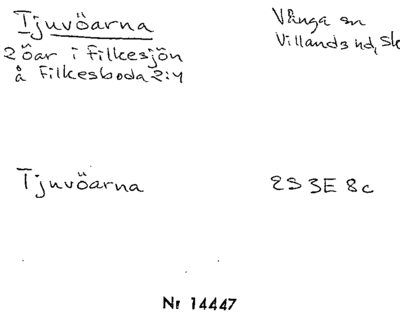 Tjuvöarna
2 öar i Filkesjön
å Filkesboda 2:4
Vånga sn
Villands hd, Sk
Tjuvöarna
2S 3E 8c
Nr 14447